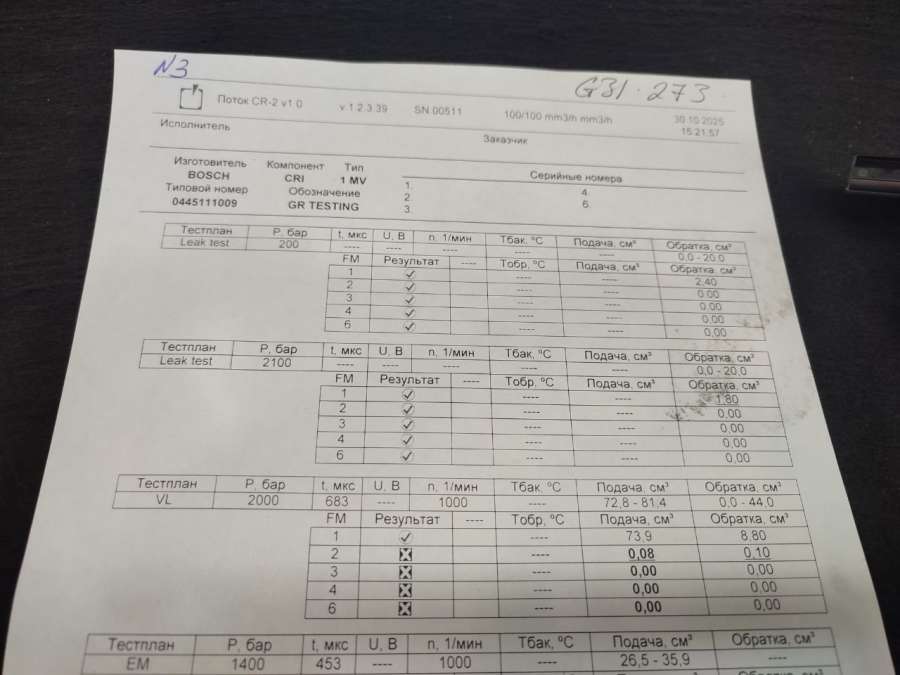 N3
G31 · 273
Поток CR-2 v1.0 v.1.2.3.39 SN 00511 100/100 mm3/h mm3/h 30.10.2025
15:21:57
Исполнитель Заказчик
Изготовитель Компонент Тип Серийные номера
BOSCH CRI 1 MV 1. 4.
Типовой номер Обозначение 2. 6.
0445111009 GR TESTING 3.
Тестплан P, бар t, мкс U, В n, 1/мин Tбак, °C Подача, см³ Обратка, см³
Leak test 200 ---- ---- ---- ---- ---- 0,0 - 20,0
FM Результат ---- Tобр, °C Подача, см³ Обратка, см³
1 ✓ ---- ---- 2,40
2 ✓ ---- ---- 0,00
3 ✓ ---- ---- 0,00
4 ✓ ---- ---- 0,00
6 ✓ ---- ---- 0,00
Тестплан P, бар t, мкс U, В n, 1/мин Tбак, °C Подача, см³ Обратка, см³
Leak test 2100 ---- ---- ---- ---- ---- 0,0 - 20,0
FM Результат ---- Tобр, °C Подача, см³ Обратка, см³
1 ✓ ---- ---- 1,80
2 ✓ ---- ---- 0,00
3 ✓ ---- ---- 0,00
4 ✓ ---- ---- 0,00
6 ✓ ---- ---- 0,00
Тестплан P, бар t, мкс U, В n, 1/мин Tбак, °C Подача, см³ Обратка, см³
VL 2000 683 ---- 1000 ---- 72,8 - 81,4 0,0 - 44,0
FM Результат ---- Tобр, °C Подача, см³ Обратка, см³
1 ✓ ---- 73,9 8,80
2 ---- 0,08 0,10
3 ---- 0,00 0,00
4 ---- 0,00 0,00
6 ---- 0,00 0,00
Тестплан P, бар t, мкс U, В n, 1/мин Tбак, °C Подача, см³ Обратка, см³
EM 1400 453 ---- 1000 ---- 26,5 - 35,9 ----